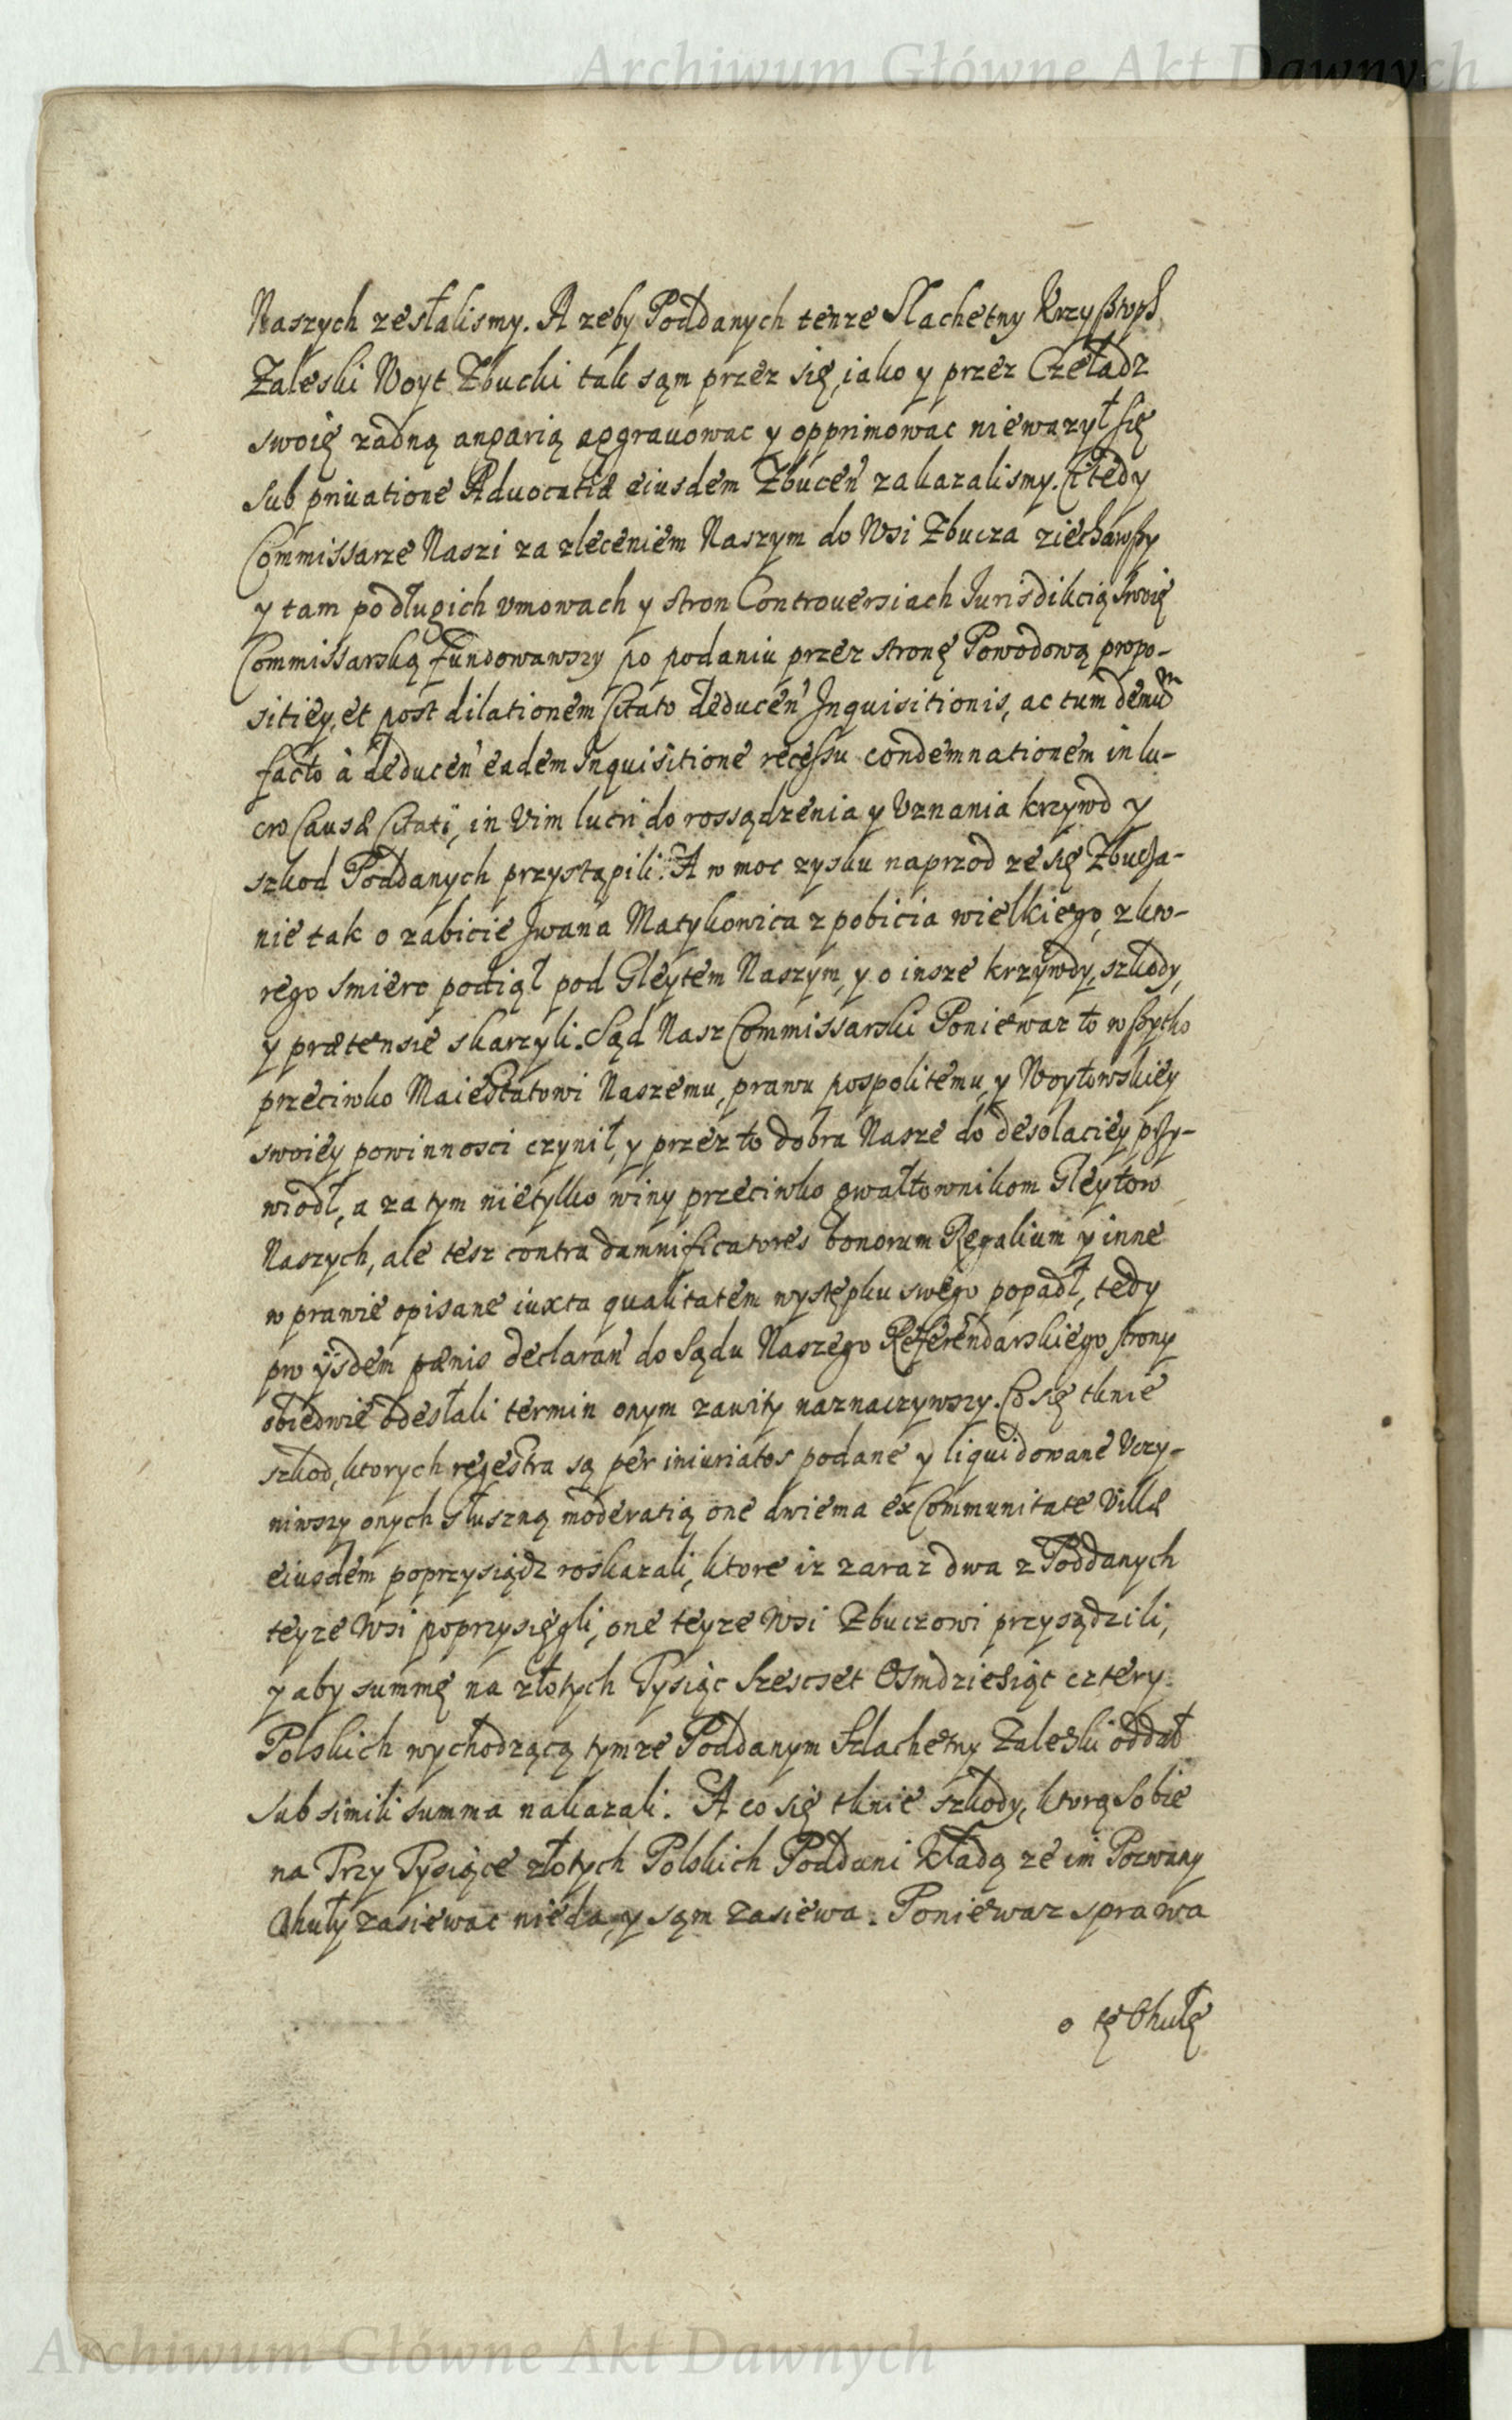 Archiwum Główne Akt Dawnych
Naszych zesłalismy. A zeby Poddanych tenze Slachetny Krzysztoph
Zaleski Woyt Zbucki tak sąm przez się, iako y przez Czeladz
swoię zadną angarią aggrauowac y opprimowac niewazył się
sub priuatione Aduocatiæ eiusdem Zbuceń zakazalismy. Ci tedy
Commissarze Naszi za zleceniem Naszym do Wsi Zbucza ziechawszy
y tam podługich vmowach y stron Controuersiach Jurisdikcią swoię
Commissarską fundowawszy po podaniu przez stronę Powodową propo-
sitiey, et post dilationem Citato deduceń Inquisitionis, ac tum demum
facto à deduceń eadem Inquisitione recessu condemnationem in lu-
cro Causæ Citati, in Vim lucri do rossądzenia y Vznania krzywd y
szkod Poddanych przystąpili. A w moc zysku naprzod ze się Zbucza-
nie tak o zabicie Jwana Matykowica z pobicia wielkiego, z kto-
rego smierc podiął pod Gleytem Naszym, y o insze krzywdy, szkody,
y prætensie skarzyli. Sąd Nasz Commissarski Poniewaz to wszytko
przeciwko Maiestatowi Naszemu, prawu pospolitemu, y Woytowskiey
swoiey powinnosci czynił, y przez to dobra Nasze do desolaciey przy-
wiodł, a za tym nietylko winy przeciwko gwałtownikom Gleytow
Naszych, ale tesz contra damnificatores bonorum Regalium y inne
w prawie opisane iuxta qualitatem występku swego popadł, tedy
pro ijsdem pænis declarań do Sądu Naszego Referendarskiego strony
obiedwie odesłali termin onym zawity naznaczywszy. Co się tknie
szkod, ktorych rejestra są per iniuriatos podane y liquidowane Vczy-
niwszy onych słuszną moderatią one dwiema ex Communitate Villæ
eiusdem poprzysiądz roskazali, ktore iz zaraz dwa z Poddanych
teyze Wsi poprzysięgli, one teyze Wsi Zbuczowi przysądzili,
y aby summę na złotych Tysiąc Szescset Osmdziesiąt cztery
Polskich wychodzącą tymze Poddanym Szlachetny Zaleski oddał
sub simili summa nakazali. A co się tknie szkody, ktorą sobie
na Trzy Tysiące złotych Polskich Poddani kładą ze im Pozwany
Chuty zasiewac nieda, y sąm zasiewa. Poniewaz sprawa
o tę Chutę
Archiwum Główne Akt Dawnych